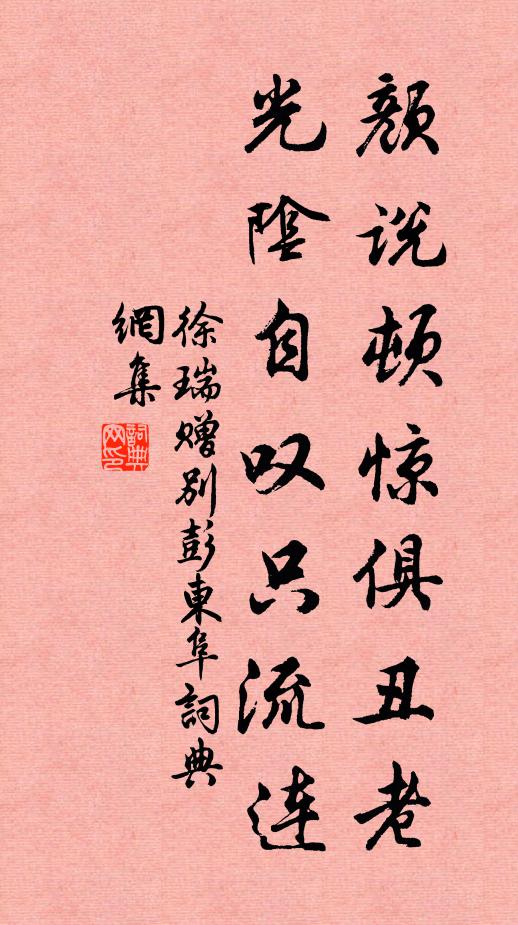 颜说顿惊俱丑老
光陰自叹只流连
徐瑞赠别彭東阜詞典
網集
詞典
网印